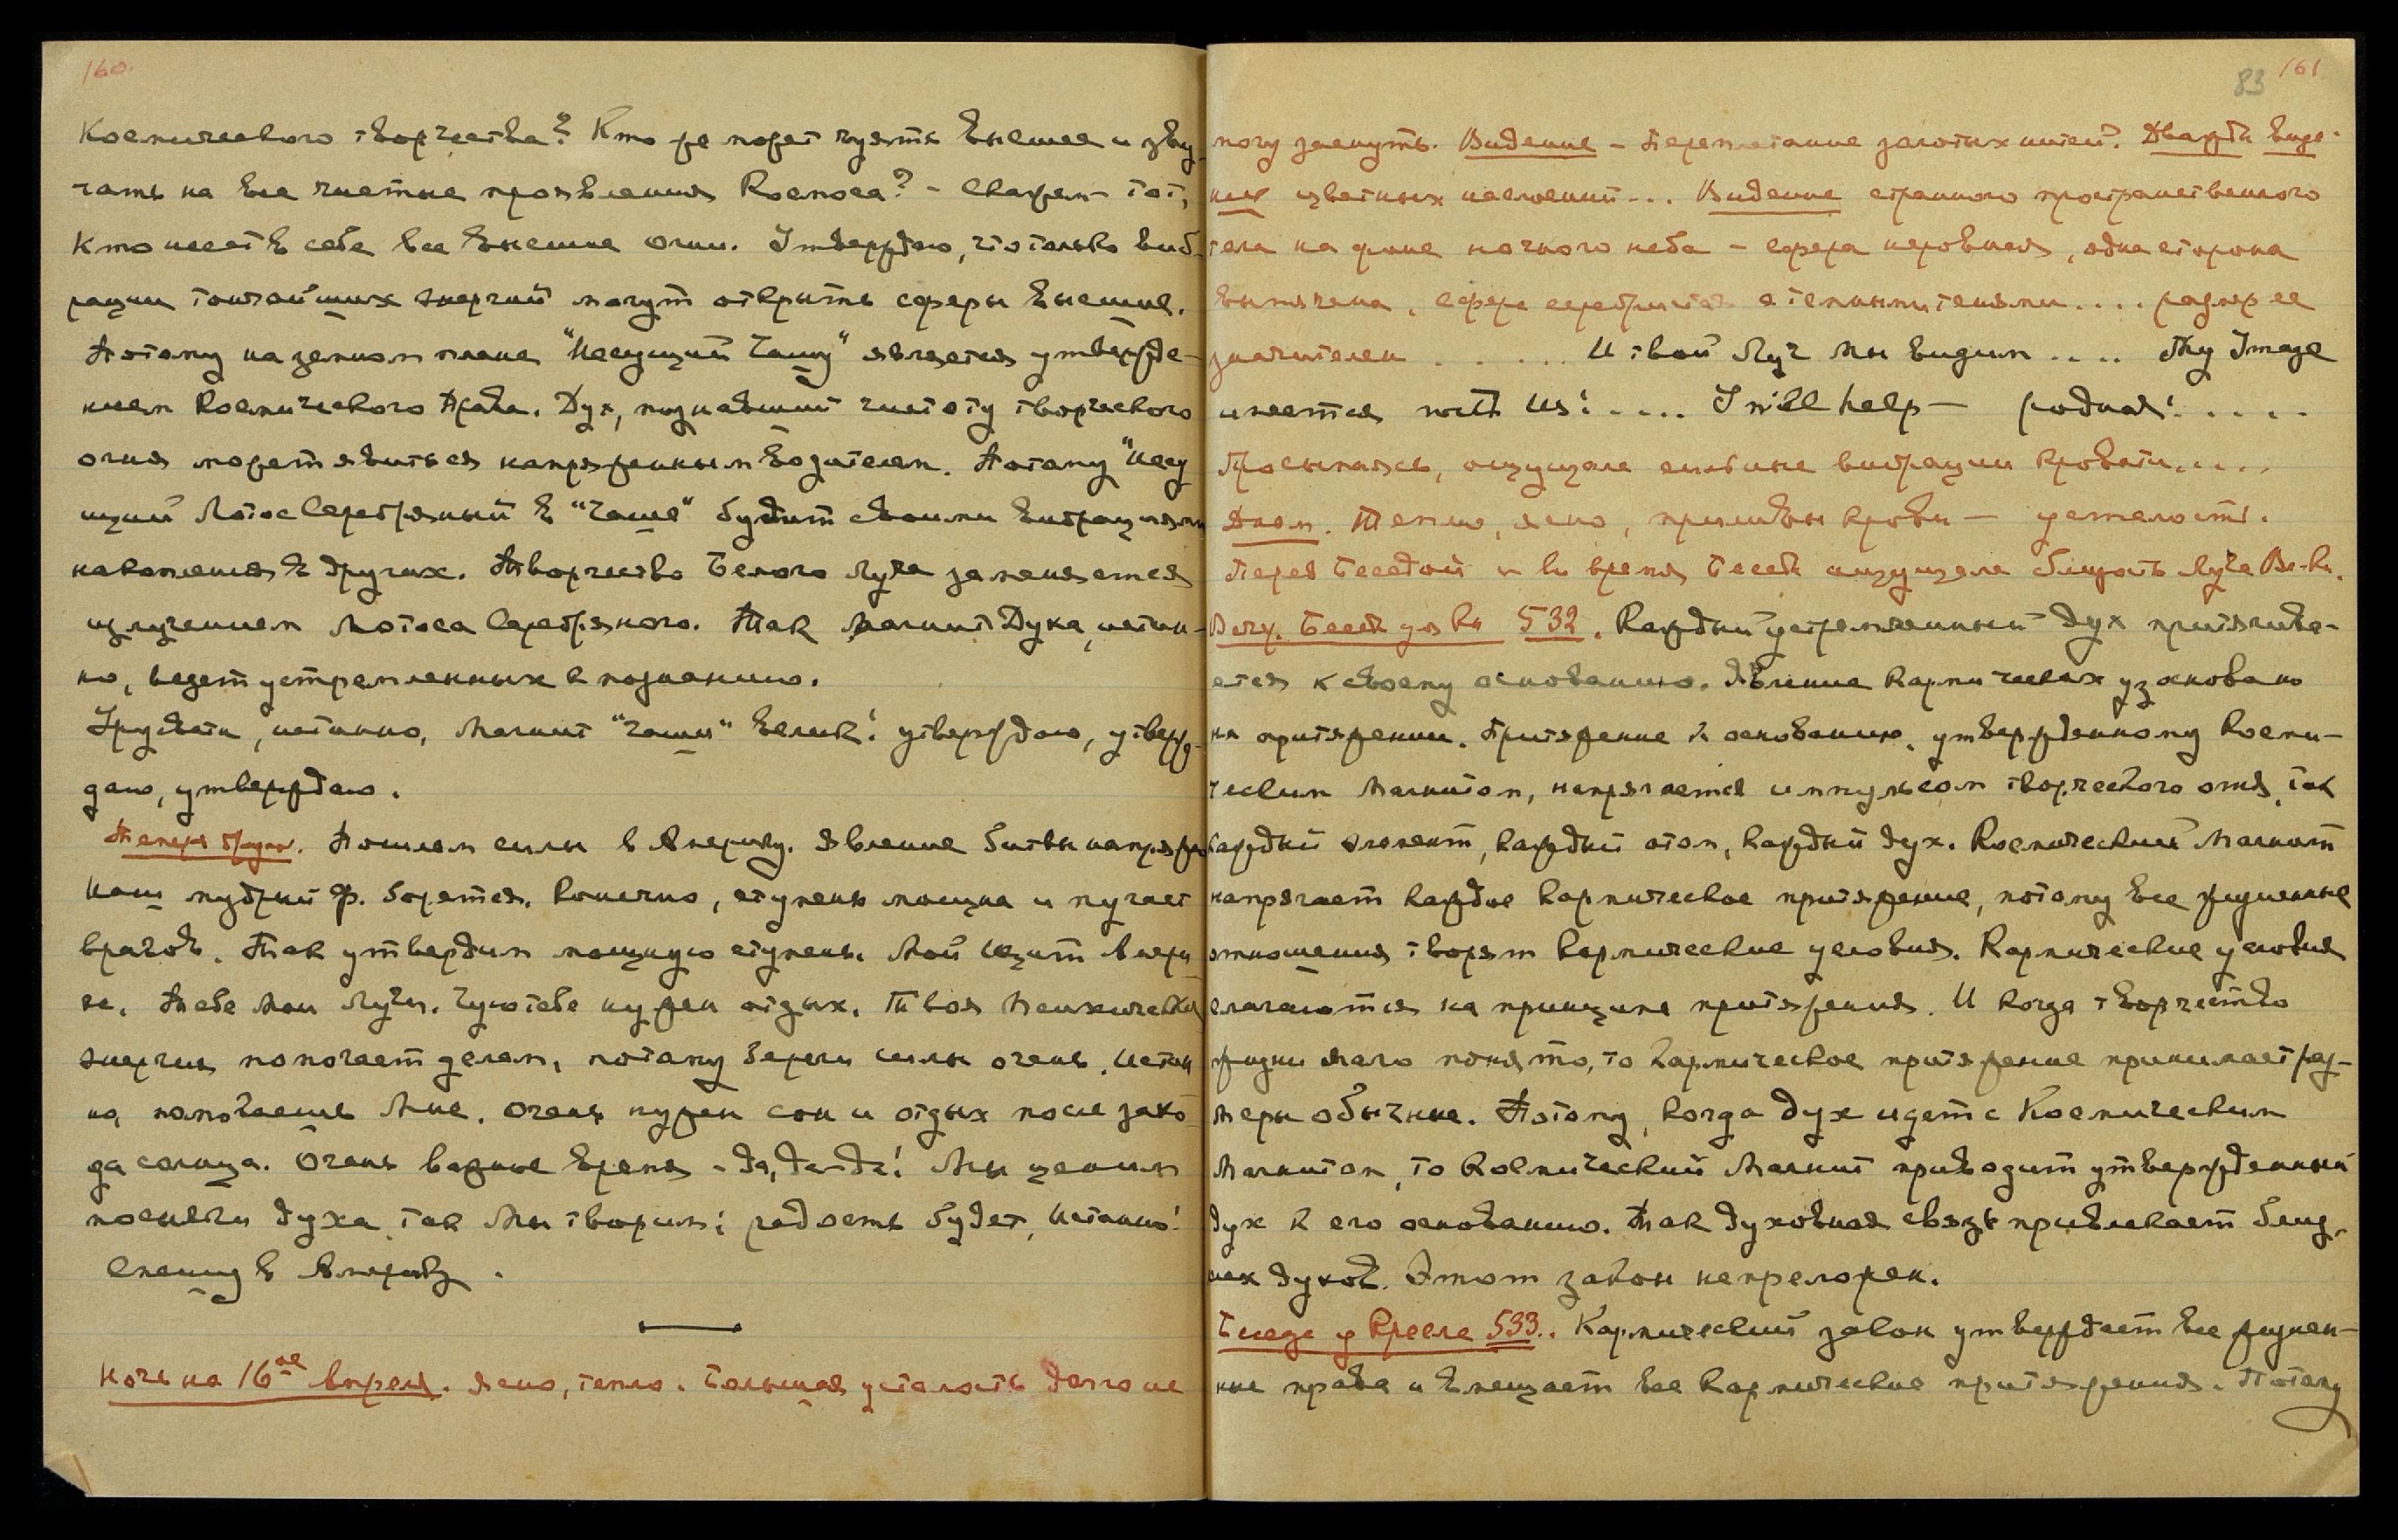 160.
Космического творчества? Кто же может чуять высшее и зву-
чать на все чистые проявления Космоса? - Скажем - тот,
кто несет в себе все высшие огни. Утверждаю, что только виб-
рации тончайших энергий могут открыть сферы высшие.
Потому на земном плане "Несущий Чашу" является утвержде-
нием Космического Права. Дух, познавший чистоту творческого
огня может явиться напряженным водителем. Потому "Несу
щий Лотос Серебряный в "Чаше" будит своими вибрациями
накопления в других. Творчество Белого Луча заменяется
излучением Лотоса Серебряного. Так Магнит Духа, истин-
но, ведет устремленных к познанию.
Урусвати, истинно, Магнит "Чаши" велик! утверждаю, утверж-
даю, утверждаю.
Теперь другое. Пошлем силы в Америку. Явление битвы напряже
Наш мудрый Ф. борется. Конечно, ступень мощна и пугает
врагов. Так утвердим мощную ступень. Мой Щит в Амери
ке. Тебе Мои Лучи. Чую тебе нужен отдых. Твоя психическая
энергия помогает делам, потому береги силы очень. Истин
но, помогаешь Мне. Очень нужен сон и отдых после зако-
да солнца. Очень важное время - да, да - да! Мы ценим
посылки духа, так Мы творим; радость будет, истинно!
Спешу в Америку.
Ночь на 16ое Апреля. Ясно, тепло. Большая усталость долго не
83 161.
могу заснуть. Видение - переплетание золотых нитей. Дважды виде-
ния цветных наслоений... Видение странного пространственного
тела на фоне ночного неба - сфера неровная, одна сторона
вытягена, сфера серебристая с темными тенями.... размер ее
значителен ..... И твой Луч Мы видим .... My Image
имеется with Us! .... I will help - родная! .....
Просыпаясь, ощущала сильные вибрации кровати.....
Днем. Тепло, ясно, приливы крови - усталость.
Перед Беседой и во время Беседы ощущала близость Луча Вл-ки.
Веч. Беседа для Кн 532. Каждый устремленный дух притягива-
ется к своему основанию. Явление кармических уз основано
на притяжении. Притяжение к основанию, утвержденному Косми-
ческим Магнитом, напрягается импульсом творческого огня, так
каждый элемент, каждый атом, каждый дух. Космический Магнит
напрягает каждое кармическое притяжение, потому все жизненные
отношения творят кармические условия. Кармические условия
слагаются на принципе притяжения. И когда творчество
жизни мало понято, то кармическое притяжение принимает раз-
меры обычные. Потому, когда дух идет с Космическим
Магнитом, то Космический Магнит приводит утвержденный
дух к его основанию. Так духовная связь привлекает близ-
ких духов. Этот закон непреложен.
Беседа у Кресла 533. Кармический закон утверждает все жизнен-
ные права и вмещает все кармические притяжения. Потому